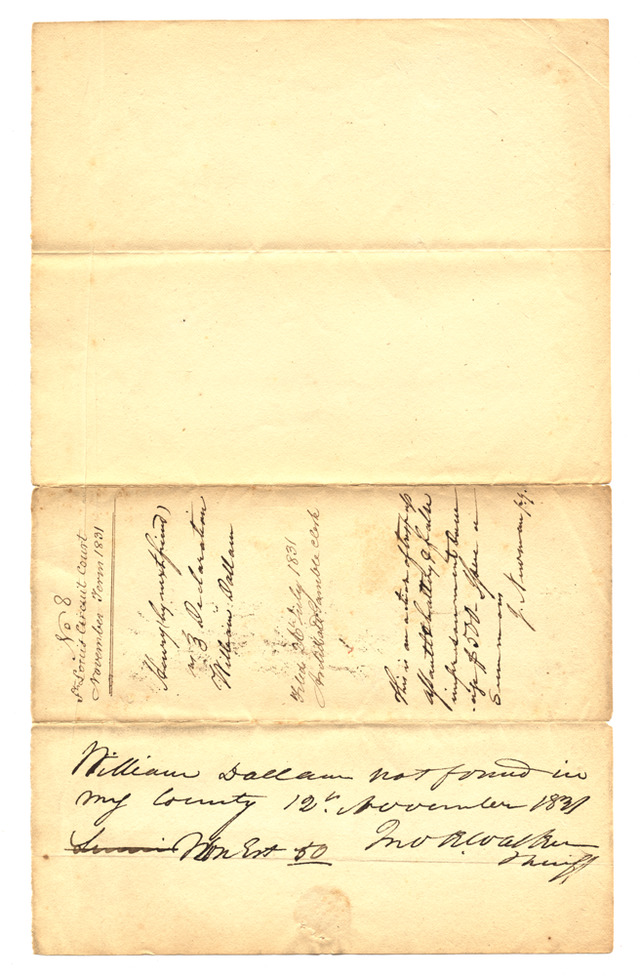 No 8
St Louis Circuit Court
November Term 1831
Henry (by next friend)
vs } Declaration
William Dallam
Filed 26th July 1831
Archibald Gamble clerk
This is an action of trespass
assault & battery & false
imprisonment dam
-age $500 - Issue a
Summons
J. Newman p.q.
William Dallam not found in
my County 12th November 1831
Non Est 50 Jno K Walker
Sheriff